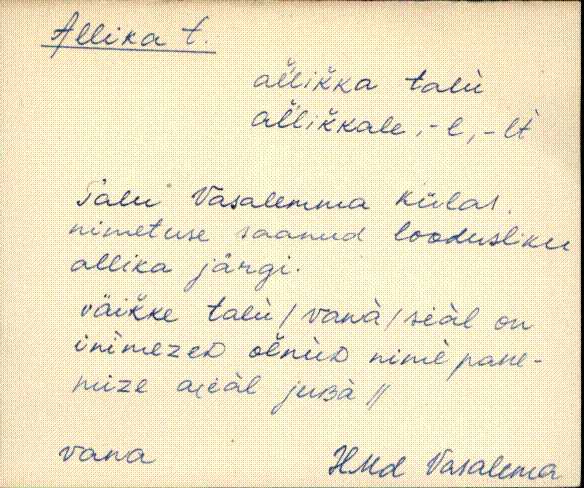 Allika t.
al̆likka talù
al̆likkale, -l, -lt̀
Talu Vasalemma külas.
nimetuse saanud loodusliku
allika järgi.
väikke talù / vanà / siàl on
inimezeᴅ ol̆nùᴅ nimè pane-
mize ajàl juʙà //
vana
HMd Vasalema